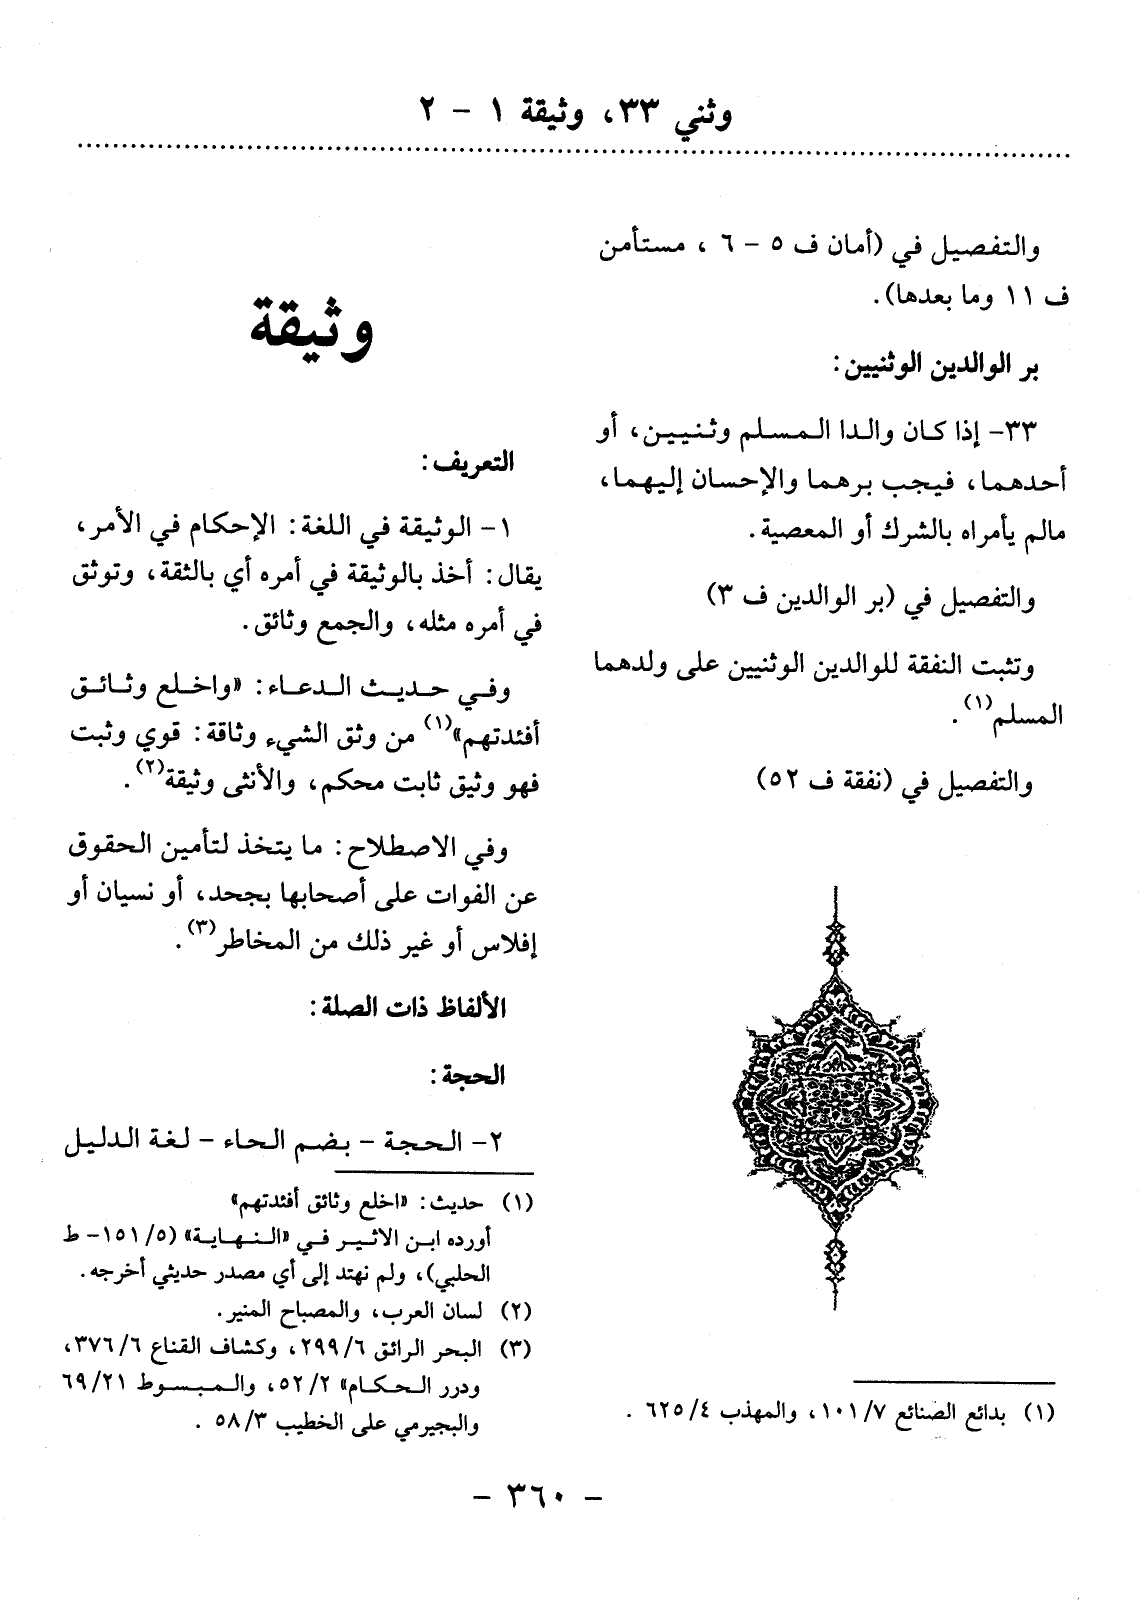 وثني ٣٣، وثيقة ١ - ٢
والتفصيل في (أمان ف ٥ - ٦ ، مستأمن
ف ١١ وما بعدها).
بر الوالدين الوثنيين:
٣٣- إذا كان والدا المسلم وثنيين، أو
أحدهما، فيجب برهما والإحسان إليهما،
مالم يأمراه بالشرك أو المعصية.
والتفصيل في (بر الوالدين ف ٣)
وتثبت النفقة للوالدين الوثنيين على ولدهما
المسلم(١).
والتفصيل في (نفقة ف ٥٢)
(١) بدائع الصنائع ١٠١/٧، والمهذب ٦٢٥/٤ .
وثيقة
التعريف:
١- الوثيقة في اللغة: الإحكام في الأمر،
يقال: أخذ بالوثيقة في أمره أي بالثقة، وتوثق
في أمره مثله، والجمع وثائق.
وفي حديث الدعاء: «واخلع وثائق
أفئدتهم»(١) من وثق الشيء وثاقة: قوي وثبت
فهو وثيق ثابت محكم، والأنثى وثيقة(٢).
وفي الاصطلاح: ما يتخذ لتأمين الحقوق
عن الفوات على أصحابها بجحد، أو نسيان أو
إفلاس أو غير ذلك من المخاطر(٣).
الألفاظ ذات الصلة:
الحجة:
٢- الحجة - بضم الحاء - لغة الدليل
(١) حديث: «اخلع وثائق أفئدتهم»
أورده ابن الاثير في «النهاية» (١٥١/٥- ط
الحلبي)، ولم نهتد إلى أي مصدر حديثي أخرجه.
(٢) لسان العرب، والمصباح المنير.
(٣) البحر الرائق ٢٩٩/٦، وكشاف القناع ٣٧٦/٦،
ودرر الحكام» ٥٢/٢، والمبسوط ٦٩/٢١
والبجيرمي على الخطيب ٥٨/٣ .
- ٣٦٠ -